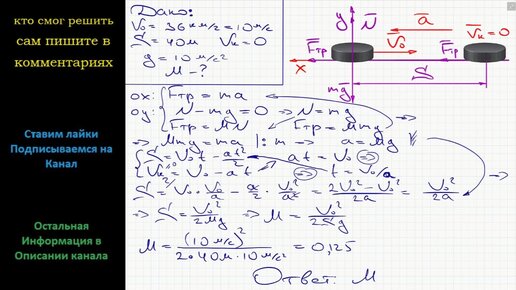 кто смог решить
сам пишите в
комментариях
Ставим лайки
Подписываемся на
Канал
Остальная
Информация в
Описании канала
Дано:
V₀ = 36 км/ч = 10 м/с
S = 40 м   Vк = 0
g = 10 м/с²
M - ?
y N a Vк = 0
Fтр V₀ Fтр
x S
mg
ox: { Fтр = ma
oy: { N - mg = 0 => N = mg
{ Fтр = MN => Fтр = Mmg
=> Mmg = ma |: m => a = Mg
{ S = V₀t - at²/2   at = V₀ =>
{ Vк = V₀ - at => t = V₀/a =>
S = V₀·V₀/a - a/2·V₀²/a² = (2V₀² - V₀²)/2a = V₀²/2a =>
=> S = V₀²/2Mg => M = V₀²/2Sg
M = (10 м/с)²/(2·40м·10м/с²) = 0,125
Ответ: M